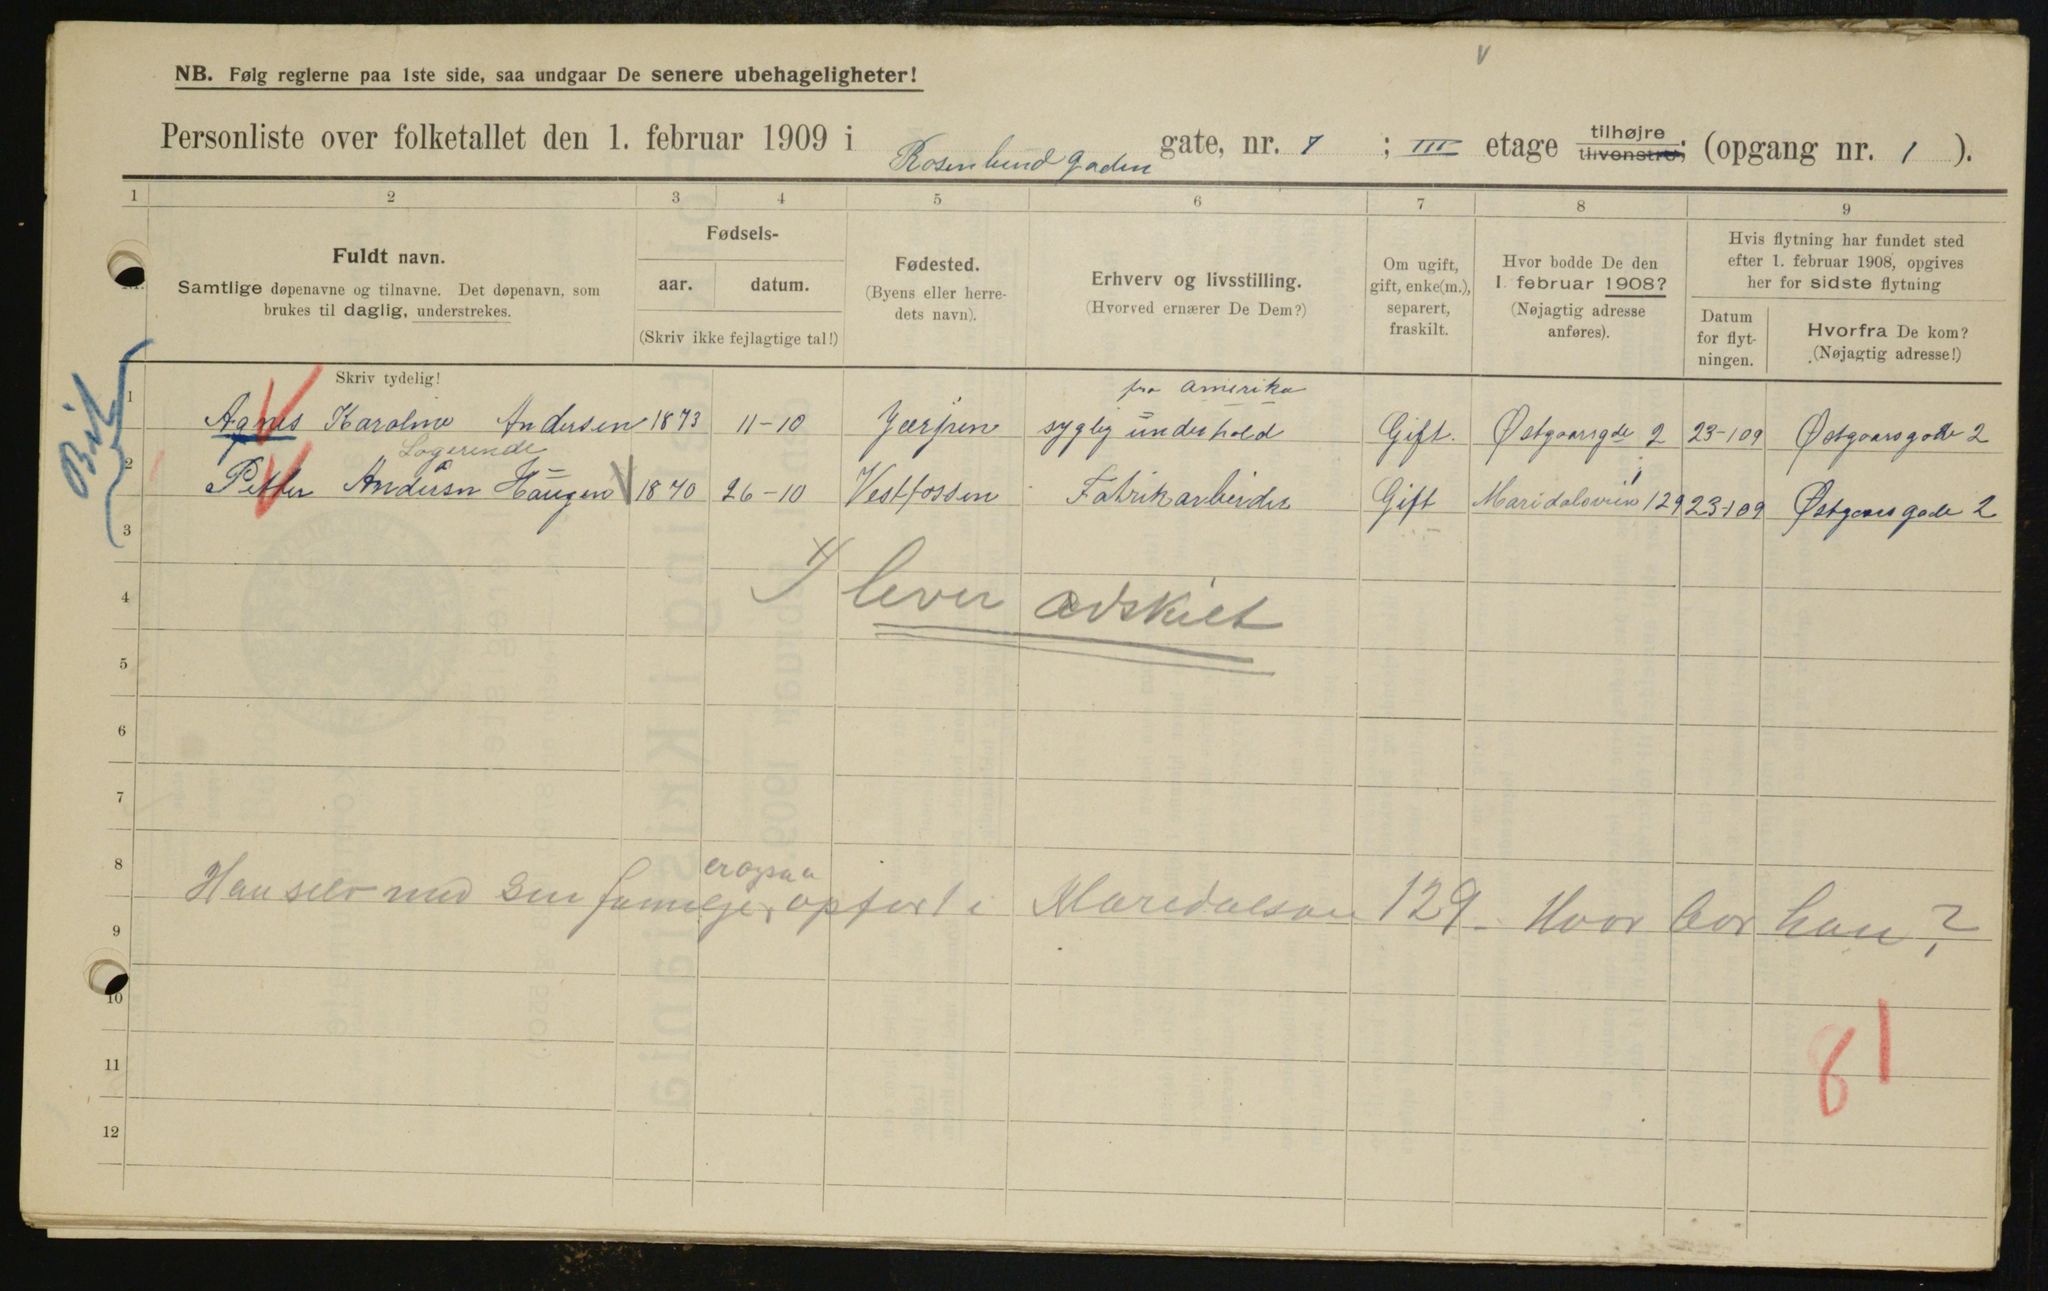 NB. Følg reglerne paa 1ste side, saa undgaar De senere ubehageligheter!
Personliste over folketallet den 1. februar 1909 i Rosenlundgaden gate, nr. 7 ; III etage tilhøjre tilvenstre; (opgang nr. 1 ).
1 2 3 4 5 6 7 8 9
Fuldt navn.
Samtlige døpenavne og tilnavne. Det døpenavn, som
brukes til daglig, understrekes.
Skriv tydelig!
Fødsels-
aar. datum.
(Skriv ikke fejlagtige tal!)
Fødested.
(Byens eller herre-
dets navn).
Erhverv og livsstilling.
(Hvorved ernærer De Dem?)
Om ugift,
gift, enke(m.),
separert,
fraskilt.
Hvor bodde De den
1. februar 1908?
(Nøjagtig adresse
anføres).
Hvis flytning har fundet sted
efter 1. februar 1908, opgives
her for sidste flytning
Datum
for flyt-
ningen.
Hvorfra De kom?
(Nøjagtig adresse!)
fra Amerika
1 Agnes Karoline Andersen 1873 11-10 Jærpen underhold Gift. Østgaarsgde 2 23-1 09 Østgaarsgade 2
Logerende
2 Petter Andersn Haugen 1870 26-10 Vestfossen Fabrikarbeider Gift Maridalsvein 129 23-1 09 Østgaarsgade 2
3
1/ lever adskilt
4
5
6
7
8
er ogsaa
Han selv med sin familje opført i Maridalsvn 129. Hvor bor han?
9
10
11
12
81